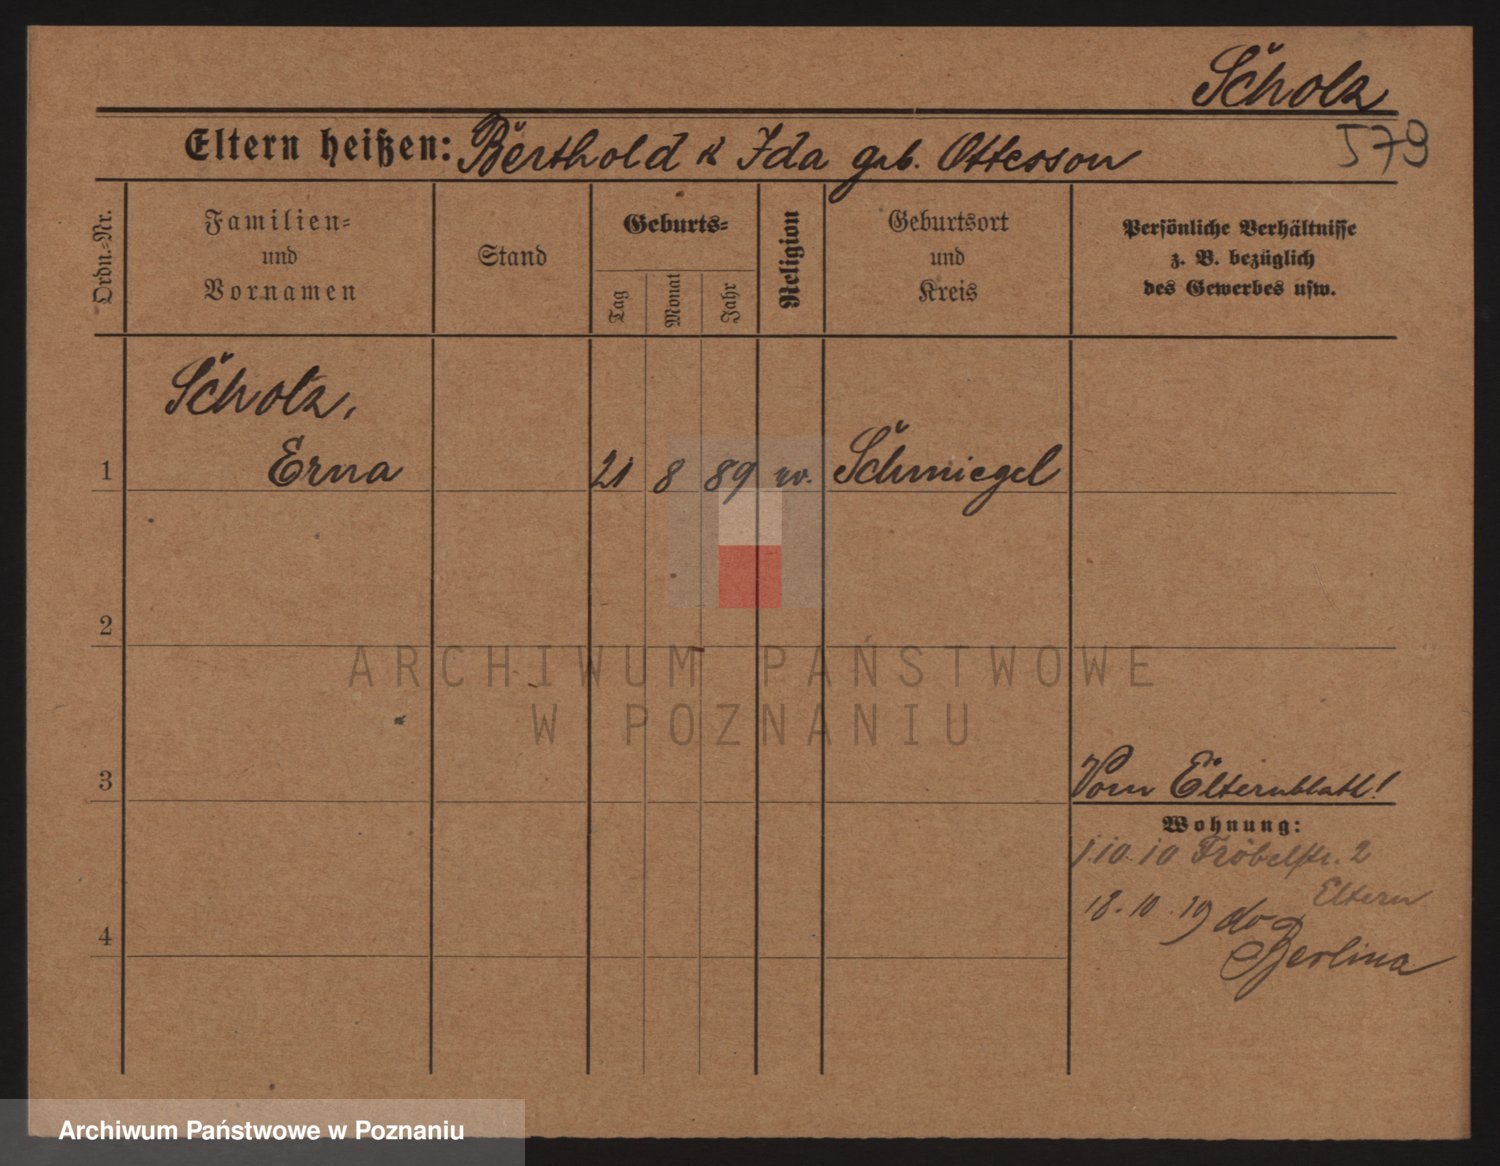 Scholz
579
Eltern heißen: Berthold & Ida geb. Ottesson
Ordn.-Nr.
Familien-
und
Vornamen
Stand
Geburts-
Tag
Monat
Jahr
Religion
Geburtsort
und
Kreis
Persönliche Verhältnisse
z. B. bezüglich
des Gewerbes usw.
Scholz,
1 Erna 21 8 89 ev. Schmiegel
2
ARCHIWUM PAŃSTWOWE
W POZNANIU
3 Vom Elternblatt!
Wohnung:
1.10.10 Fröbelstr. 2
Eltern
18.10.19 do
4
Berlina
Archiwum Państwowe w Poznaniu